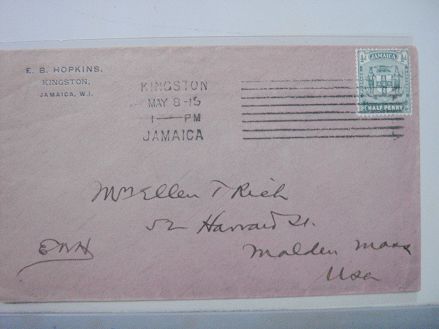 E. B. HOPKINS,
KINGSTON,
JAMAICA, W.I.
KINGSTON
MAY 8-15
1—PM
JAMAICA
JAMAICA
HALF PENNY
Mrs Ellen T Rich
52 Harvard St.
Malden Mass
USA